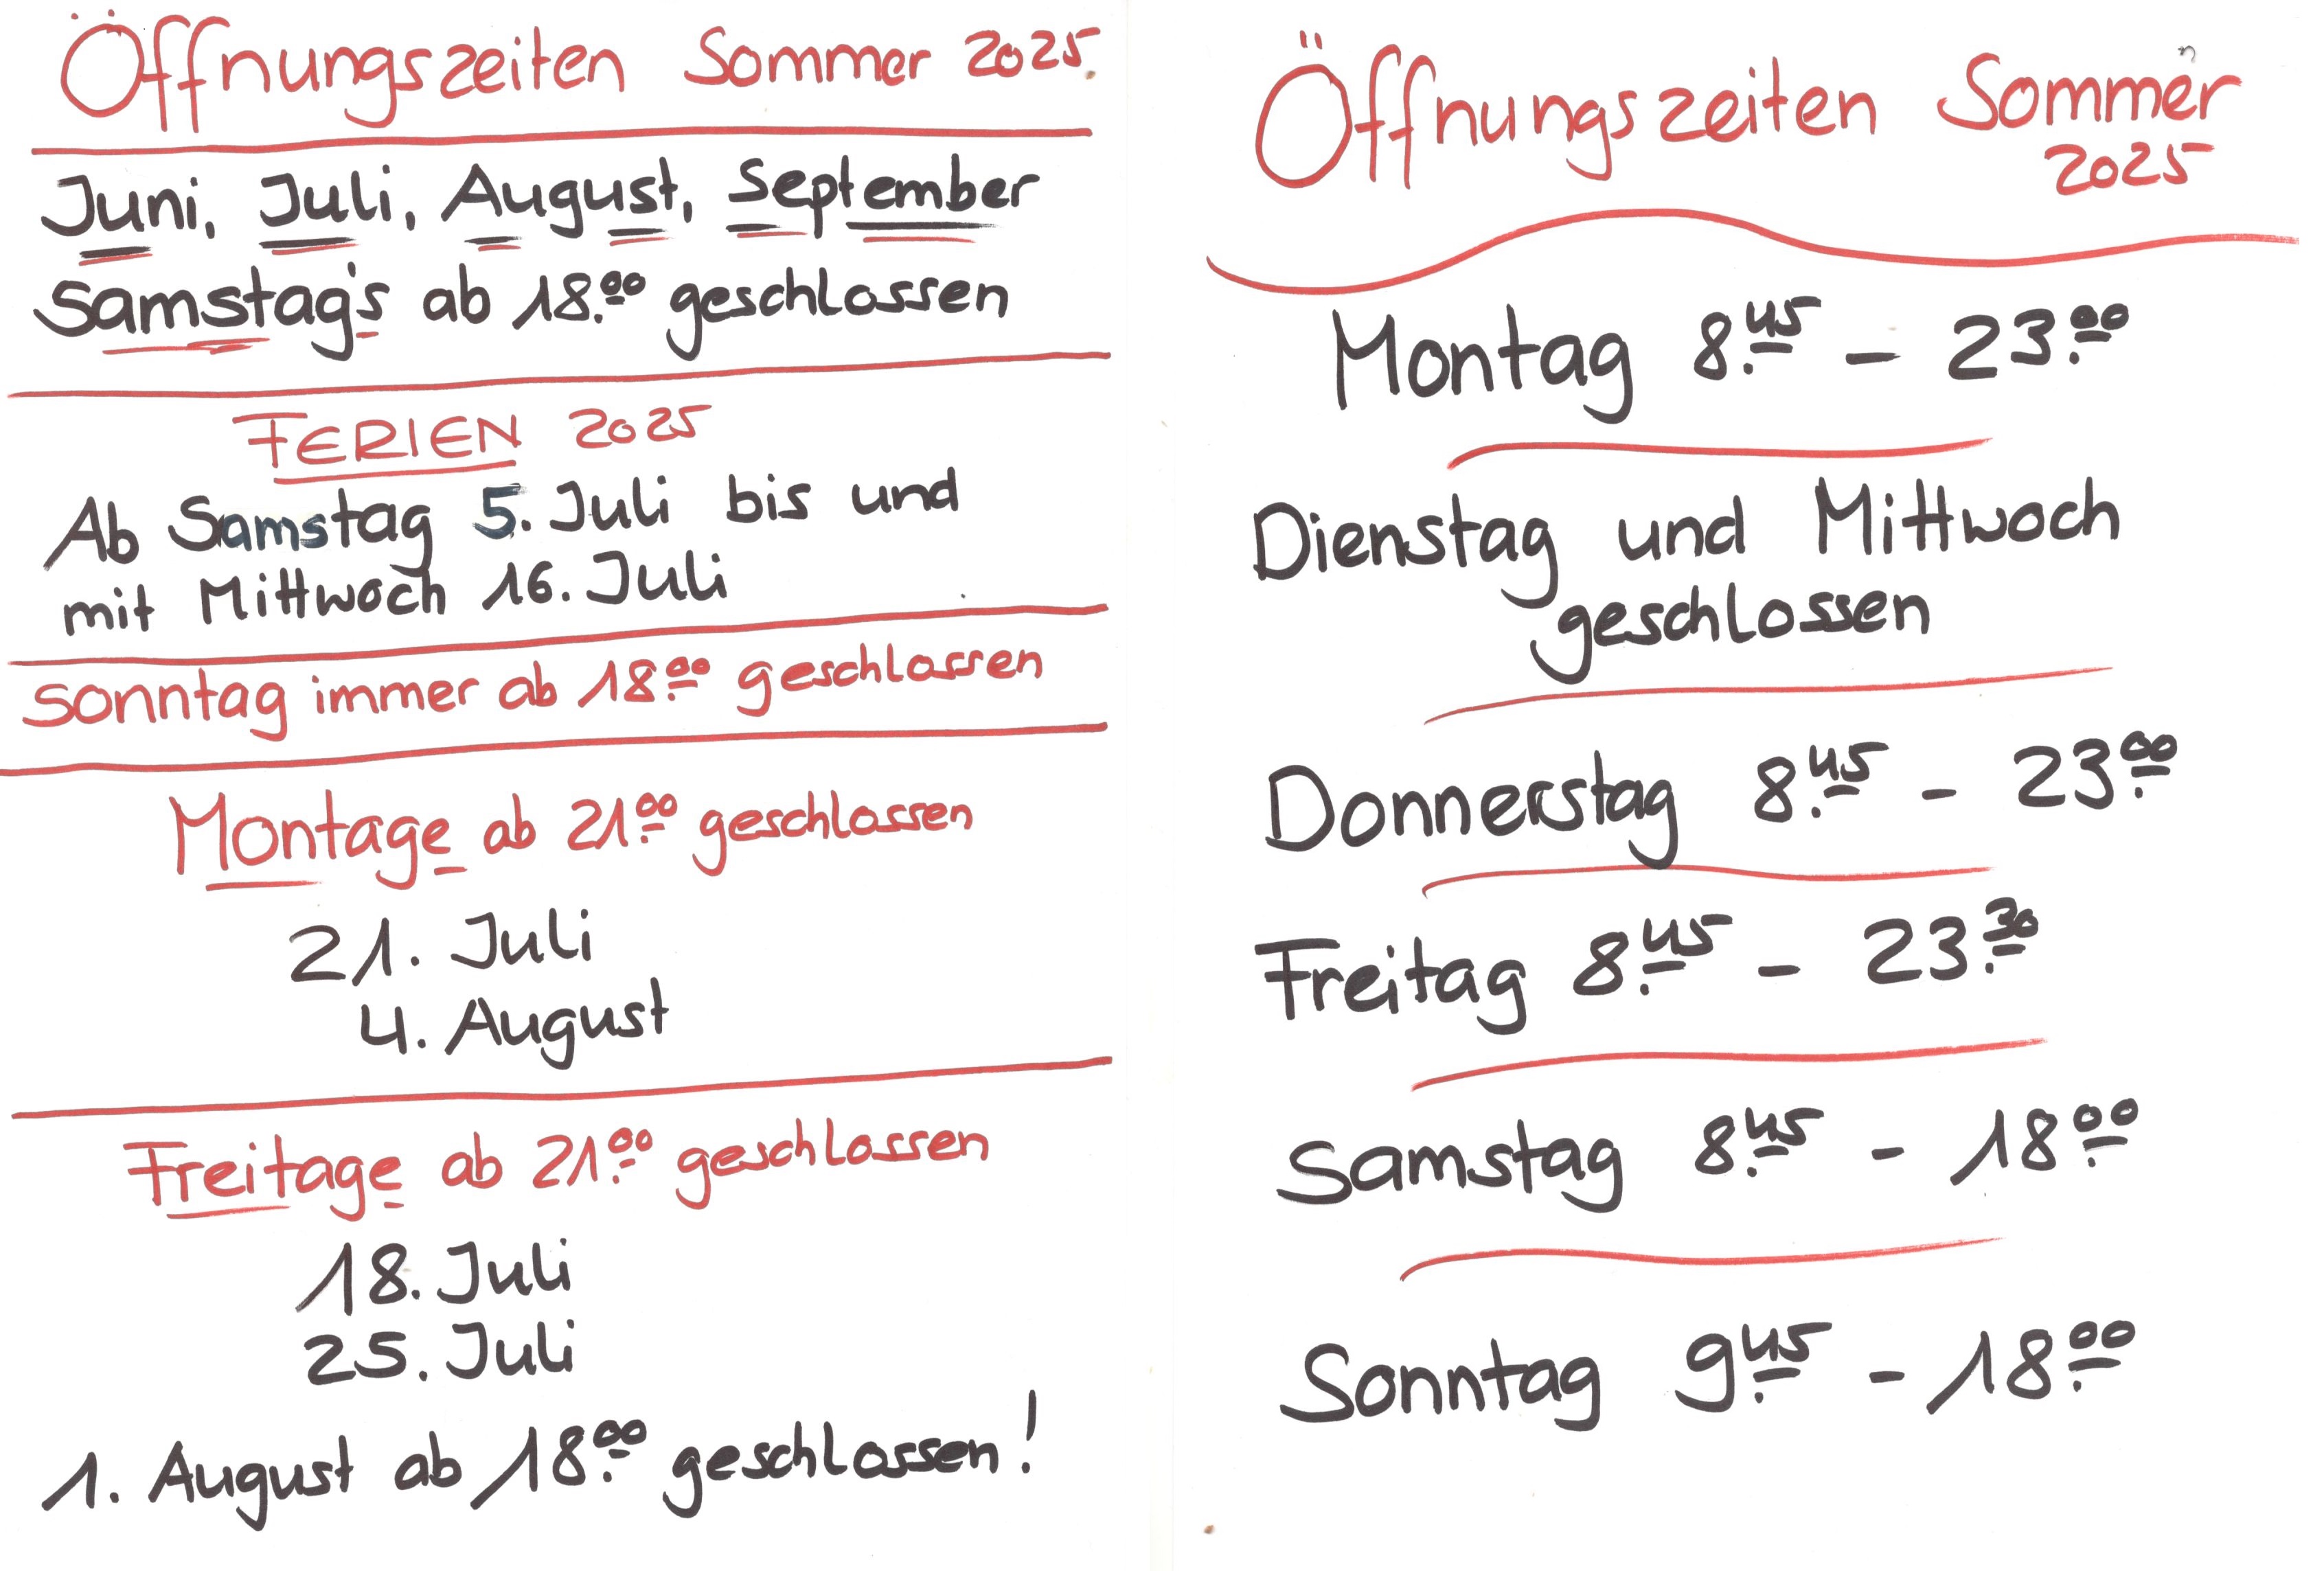 Öffnungszeiten Sommer 2025
Juni, Juli, August, September
Samstag's ab 18.00 geschlossen
FERIEN 2025
Ab Samstag 5. Juli bis und
mit Mittwoch 16. Juli
Sonntag immer ab 18.00 geschlossen
Montage ab 21.00 geschlossen
21. Juli
4. August
Freitage ab 21.00 geschlossen
18. Juli
25. Juli
1. August ab 18.00 geschlossen!
Öffnungszeiten Sommer
2025
Montag 8.45 – 23.00
Dienstag und Mittwoch
geschlossen
Donnerstag 8.45 – 23.00
Freitag 8.45 – 23.30
Samstag 8.45 – 18.00
Sonntag 9.45 – 18.00